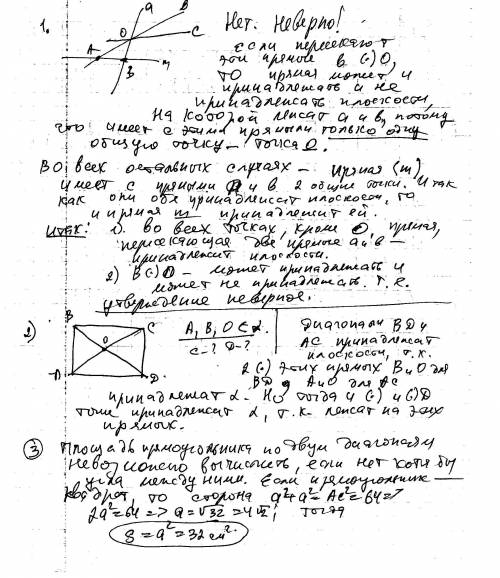 1.
a
B
O
C
A
B
m
Нет. Неверно!
если пересекают
эти прямые в (·) O,
то прямая может и
принадлежать и не
принадлежать плоскости,
на которой лежат a и в, потому
что имеет с этими прямыми только одну
общую точку – точка O.
Во всех остальных случаях – прямая (m)
имеет с прямыми a и в 2 общие точки. И так
как они обе принадлежат плоскости, то
и прямая m принадлежит ей.
Итак: 1). во всех точках, кроме O, прямая,
пересекающая две прямые a и в –
принадлежит плоскости.
2) В (·) O – может принадлежать и
может не принадлежать. т.к.
утверждение неверное.
2)
B
C
O
A
D
A, B, O ∈ α.
C-? D-?
Диагонали BD и
AC принадлежат
плоскости, т.к.
2 (·) этих прямых B и O для
BD и A и O для AC
принадлежат α. Но тогда и (·) C и (·) D
тоже принадлежат α, т.к. лежат на этих
прямых.
3) Площадь прямоугольника по двум диагоналям
невозможно вычислить, если нет хотя бы
угла между ними. Если прямоугольник –
квадрат, то сторона a²+a²=AC²=64=>
2a²=64 => a=√32=4√2; тогда
S=a²=32 см².